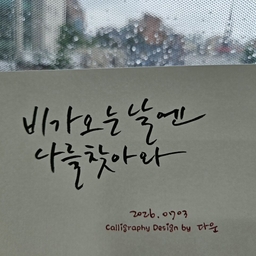 비가오는날엔
나를찾아와
2026.07.03
Calligraphy Design by 다온